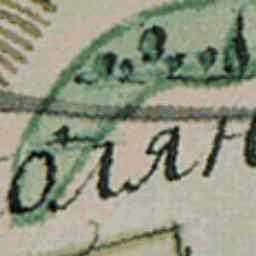 олян